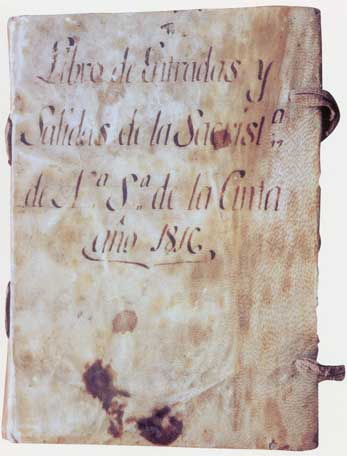 Libro de Entradas y
Salidas de la Sacrist.ª
de N.ª S.ª de la Cinta
año 1816,